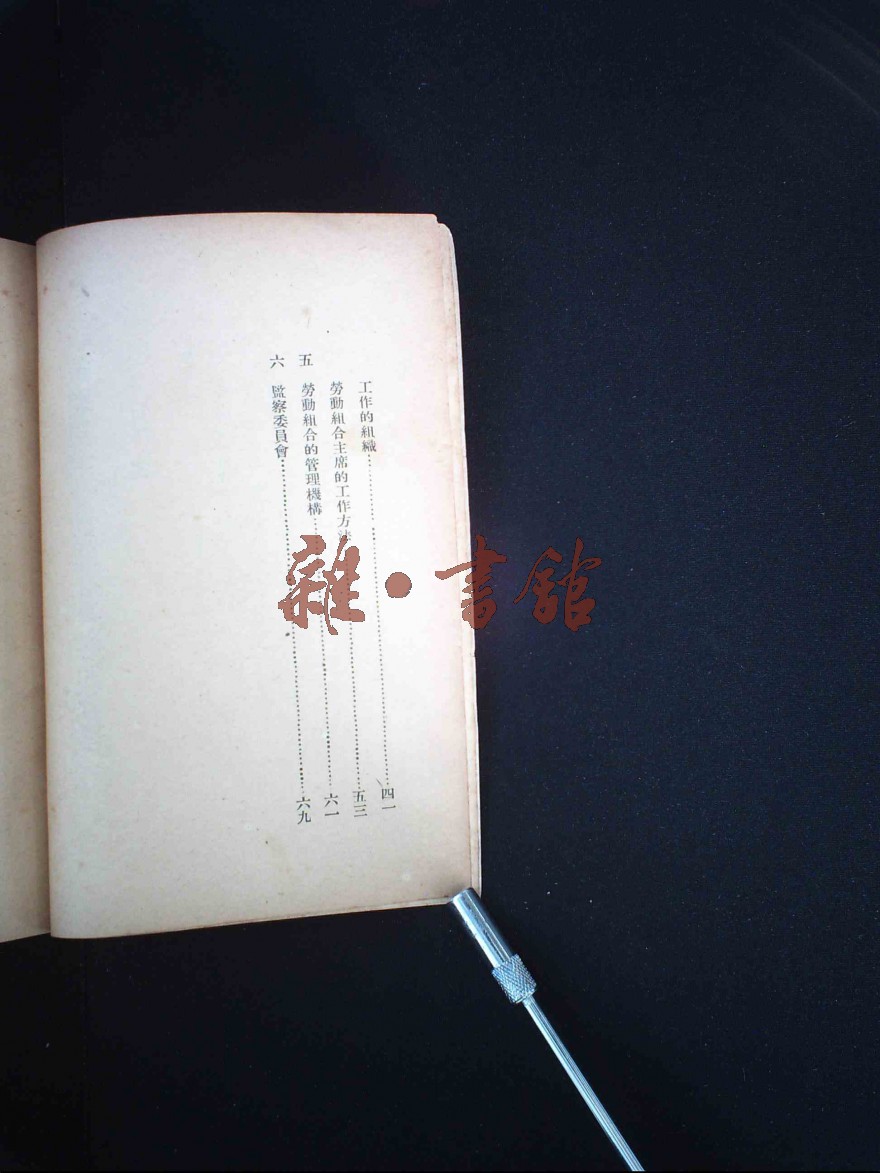 工作的組織……四一
勞動組合主席的工作方法……五三
五 勞動組合的管理機構……六一
六 監察委員會……六九
雜·書館